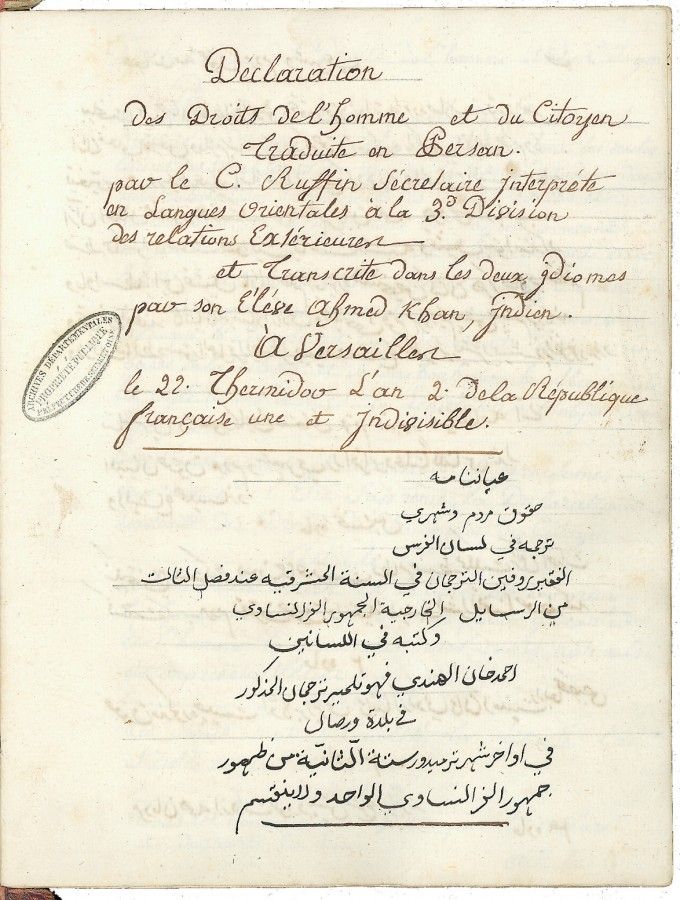 Déclaration
des Droits de l'homme et du Citoyen
Traduite en Persan.
par le C. Ruffin Sécretaire interpréte
en Langues Orientales à la 3.e Division
des relations Extérieures
et Transcrite dans les deux jdiomes
par son Eléve Ahmed Khan, jndien.
À Versailles
le 22. Thermidor L'an 2. de la République
française une et Jndivisible.
ARCHIVES DÉPARTEMENTALES
PROPRIÉTÉ PUBLIQUE
عياننامه
حقوق مردم و شهري
ترجمه في لسان الفرس
الفقير روفين الترجمان في السنة المشرقيه عند فصل الثالث
من الرسايل الخارجية الجمهور الفرانساوي
وكتبه في اللسانين
احمد خان الهندي فهو تلميذ ترجمان المذكور
في بلدة ورصال
في اواخر شهر ترميدور سنة الثانية من ظهور
جمهور الفرانساوي الواحد ولا ينقسم